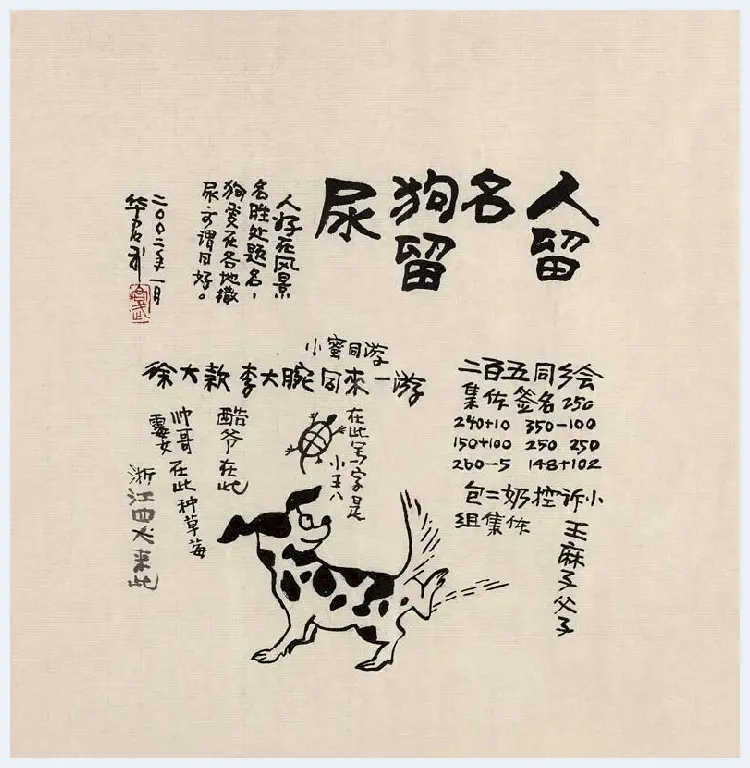 人留
名
狗留
尿
人好在风景
名胜处题名，
狗爱在各地撒
尿可谓同好。
二〇〇二年一月
华君武
君武
小蜜同游
徐大款 李大腕同来一游
二百五同乡会
集体签名250
240+10 350-100
150+100 250 250
260-5 148+102
包二奶控诉小
组集体
王麻子父子
在此写字是
小王八
酷爷在此
帅哥 在此种草莓
靓女
浙江四犬来此